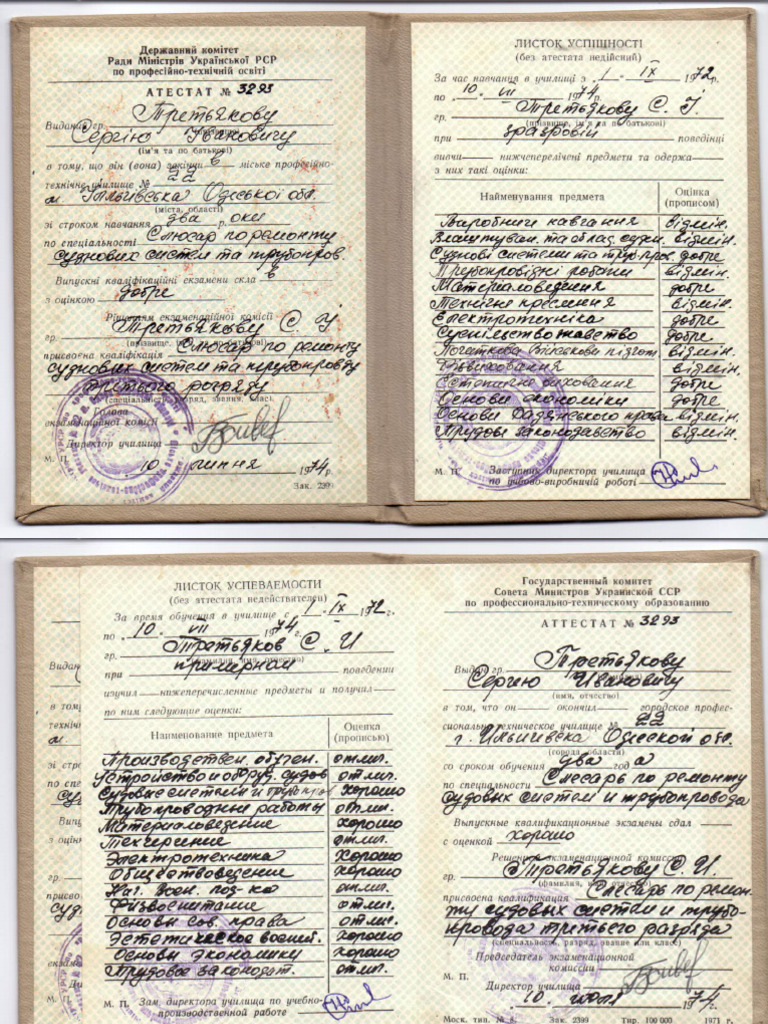 Державний комітет
Ради Міністрів Української РСР
по професійно-технічній освіті
АТЕСТАТ № 3293
Виданий гр. Третьякову
Сергію Івановичу
(ім'я та по батькові)
в тому, що він (вона) закінчи в міське професійно-
технічне училище № 22
м. Іллічівська Одеської обл.
(міста, області)
зі строком навчання два роки
по спеціальності Слюсар по ремонту
суднових систем та трубопров.
Випускні кваліфікаційні екзамени скла в
з оцінкою добре
Рішенням екзаменаційної комісії
гр. Третьякову С. І
(прізвище, ім'я та по батькові)
присвоєна кваліфікація Слюсар по ремонту
суднових систем та трубопроводу
третього розряду
(спеціальність, розряд, звання, клас)
Голова
екзаменаційної комісії
Директор училища
М. П. 10 липня 1974 р.
Зак. 2399
ЛИСТОК УСПІШНОСТІ
(без атестата недійсний)
За час навчання в училищі з 1 IX 1972 р.
по 10. VII 1974 р.
гр. Третьякову С. І.
(прізвище, ім'я та по батькові)
при зразковій поведінці
вивчи нижчеперелічені предмети та одержа
з них такі оцінки:
Найменування предмета Оцінка (прописом)
Виробниче навчання відмін.
Влаштуван. та облад. суден. відмін.
Суднові системи та труб-пров. добре
Трубопровідні роботи відмін.
Материаловедення добре
Технічне креслення відмін.
Електротехніка добре
Суспільствознавство добре
Початкова військова підгот. відмін.
Фізвиховання відмін.
Естетичне виховання добре
Основи економіки добре
Основи Радянського права відмін.
Трудове законодавство відмін.
М. П. Заступник директора училища
по учбово-виробничій роботі
ЛИСТОК УСПЕВАЕМОСТИ
(без аттестата недействителен)
За время обучения в училище с 1 IX 1972 г.
по 10. VII 1974 г.
гр. Третьяков С. И
(фамилия, имя, отчество)
при примерном поведении
изучил нижеперечисленные предметы и получил
по ним следующие оценки:
Наименование предмета Оценка (прописью)
Производствен. обучен. отлич.
Устройство и оборуд. судов отлич.
Судовые системы и трубопров хорошо
Трубопроводные работы отлич.
Материаловедение хорошо
Техчерчение отлич.
Электротехника хорошо
Обществоведение хорошо
Нач. воен. под-ка отлич.
Физвоспитание отлич.
Основы сов. права отлич.
Эстетическое воспит. хорошо
Основы экономики хорошо
Трудовое законодат. отлич.
М. П. Зам. директора училища по учебно-
производственной работе
Государственный комитет
Совета Министров Украинской ССР
по профессионально-техническому образованию
АТТЕСТАТ № 3293
Выдан гр. Третьякову
Сергею Ивановичу
(имя, отчество)
в том, что он окончил городское профес-
сионально-техническое училище № 22
г. Ильичевска Одесской обл.
(города, области)
со сроком обучения два года
по специальности Слесарь по ремонту
судовых систем и трубопровода
Выпускные квалификационные экзамены сдал
с оценкой хорошо
Решением экзаменационной комиссии
гр. Третьякову С. И.
(фамилия, имя, отчество)
присвоена квалификация Слесарь по ремон-
ту судовых систем и трубо-
провода третьего разряда
(специальность, разряд, звание или класс)
Председатель экзаменационной
комиссии
М. П.
Директор училища
10. июля 1974 г.
Моск. тип. № 8. Зак. 2399 Тир. 100 000 1971 г.